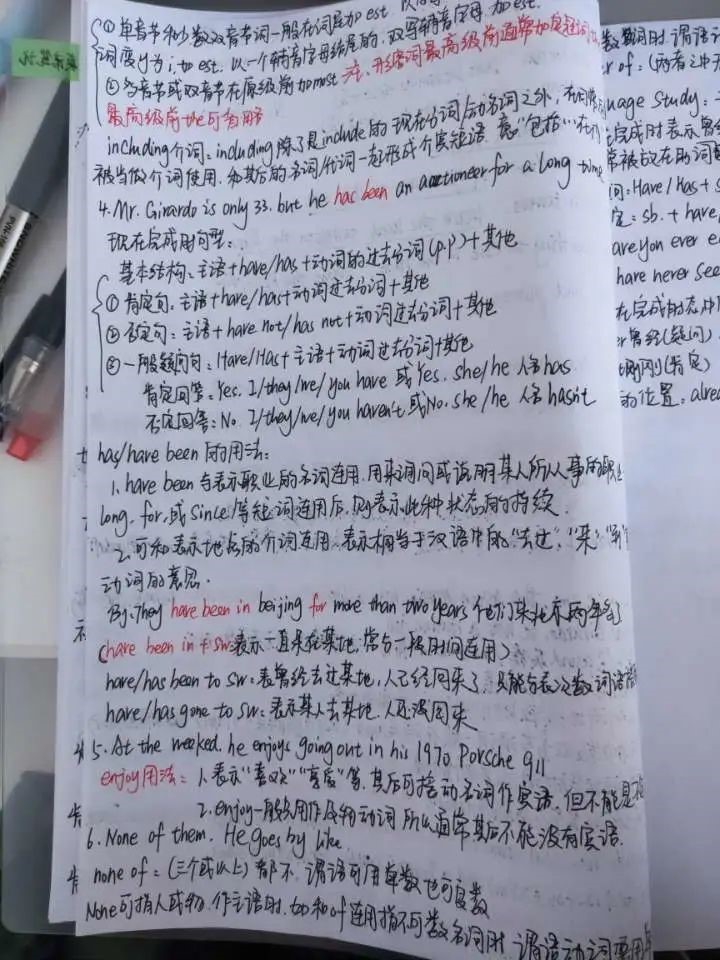 ① 单音节和少数双音节词一般在词尾加 est. 以
词变 y 为 i, to est. 以一个辅音字母结尾的, 双写辅音字母, 加 est.
② 多音节或双音节在原级前加 most 注: 形容词最高级前通常加定冠词
最高级前 the 可
including 介词: including 除了是 include 的现在分词/动名词之外, 在
被当做介词使用. 和其后的名词/代词一起形成介宾短语 意 "包括…在
4. Mr. Girardo is only 33. but he has been an auctioneer for a long time
现在完成时句型:
基本结构: 主语+have/has+动词的过去分词(p.p)+其他
① 肯定句: 主语+have/has+动词过去分词+其他
② 否定句: 主语+have not/has not+动词过去分词+其他
③ 一般疑问句: Have/Has+主语+动词过去分词+其他
肯定回答: Yes. I/they/we/you have 或 Yes. she/he 人名 has
否定回答: No. I/they/we/you haven't 或 No. she/he 人名 hasn't
has/have been 的用法:
1. have been 与表示职业的名词连用. 用来询问或说明某人所从事的职业
long. for. 或 since 等短词连用后, 则表示此种状态的持续
2. 可和表示地点的介词连用. 表示相当于汉语中的 "去过", "来" "到"
动词的意思.
By: They have been in beijing for more than two years 他们来北京两年多了
(have been in + sw: 表示一直呆在某地, 常与一段时间连用)
have/has been to sw: 表曾经去过某地, 人已经回来了. 只能与表次数词语
have/has gone to sw: 表示某人去某地. 人还没回来
5. At the weeked. he enjoys going out in his 1970 Porsche 911
enjoy 用法: 1. 表示 "喜欢" "享受" 等. 其后可接动名词作宾语. 但不能是
2. enjoy 一般只用作及物动词 所以通常其后不能没有宾语.
6. None of them. He goes by like
none of: (三个或以上) 都不. 谓语可用单数也可复数
None 可指人或物. 作主语时. 如和 of 连用指不可数名词时. 谓语动词要用
数 时. 谓语
r of: (两者之中
uage Study:
完成时表示
被放在助词
问: Have / Has +
定: sb. + have
are you ever
have never see
在完成时态中
曾经(疑问)
刚刚(肯定)
的位置. alrea